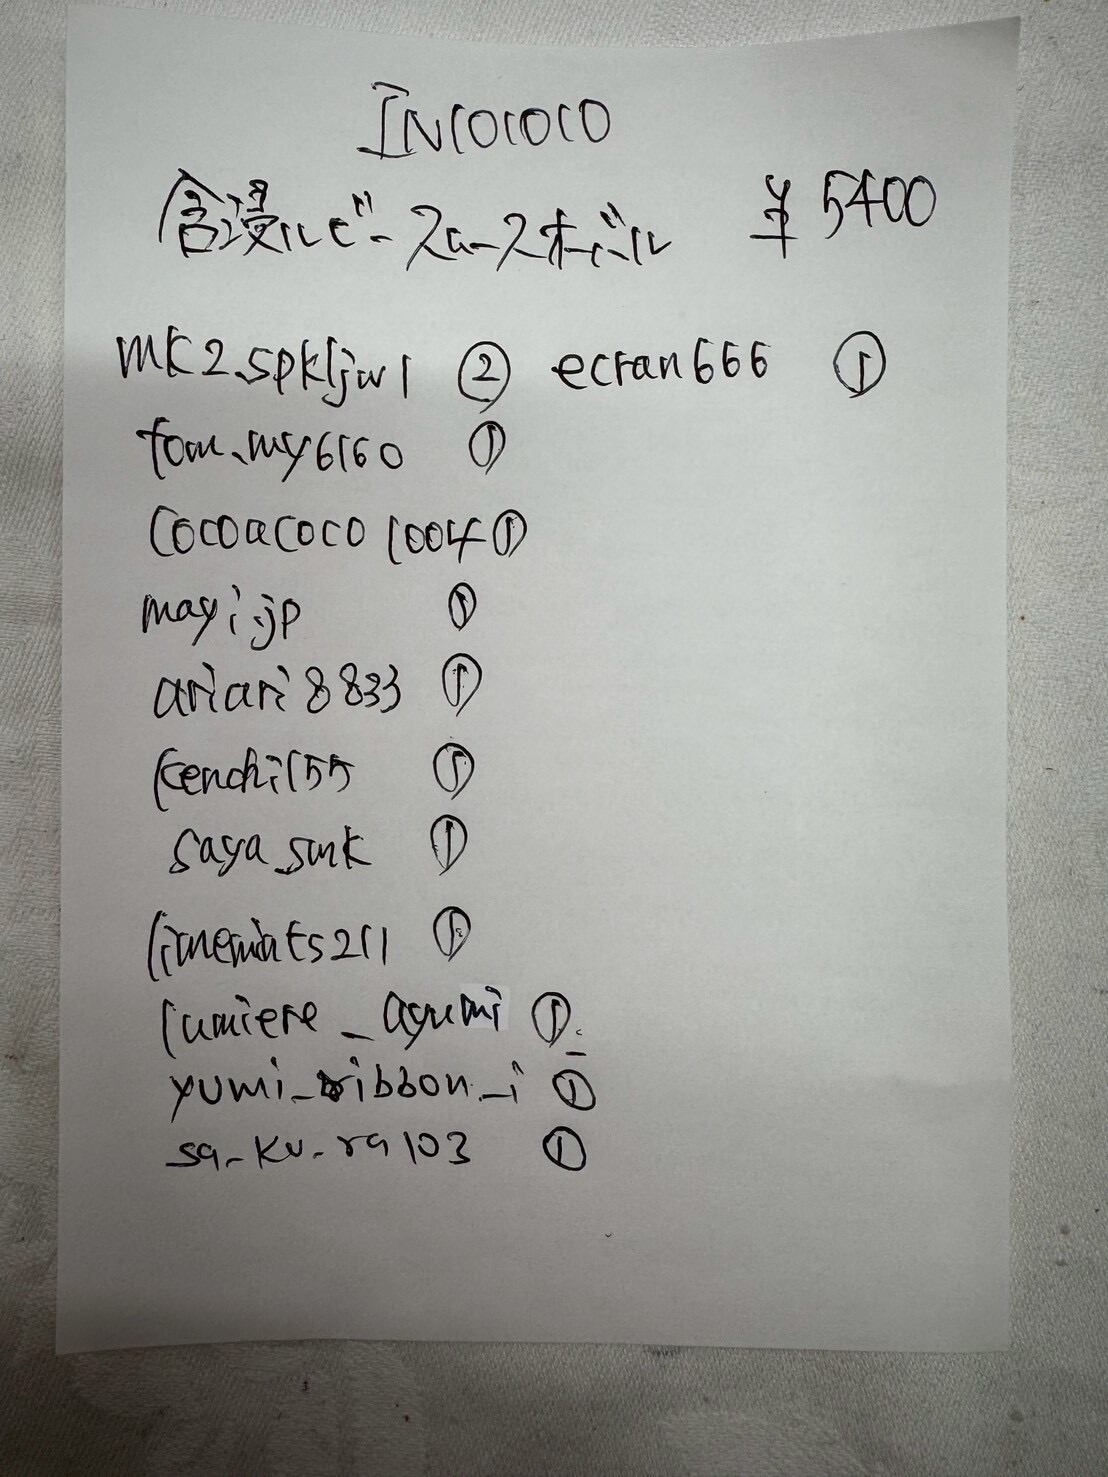 INCOCOCO
含浸ルビースムースオーバル ¥5400
mk2_spkljw1 ② ecran666 ①
tom.my6160 ①
cocoacoco1004 ①
mayi.jp ①
ariari8833 ①
kenchi155 ①
saya_smk ①
①
lumiere_ayumi ①
yumi_ribbon_i ①
sa_ku_ra103 ①